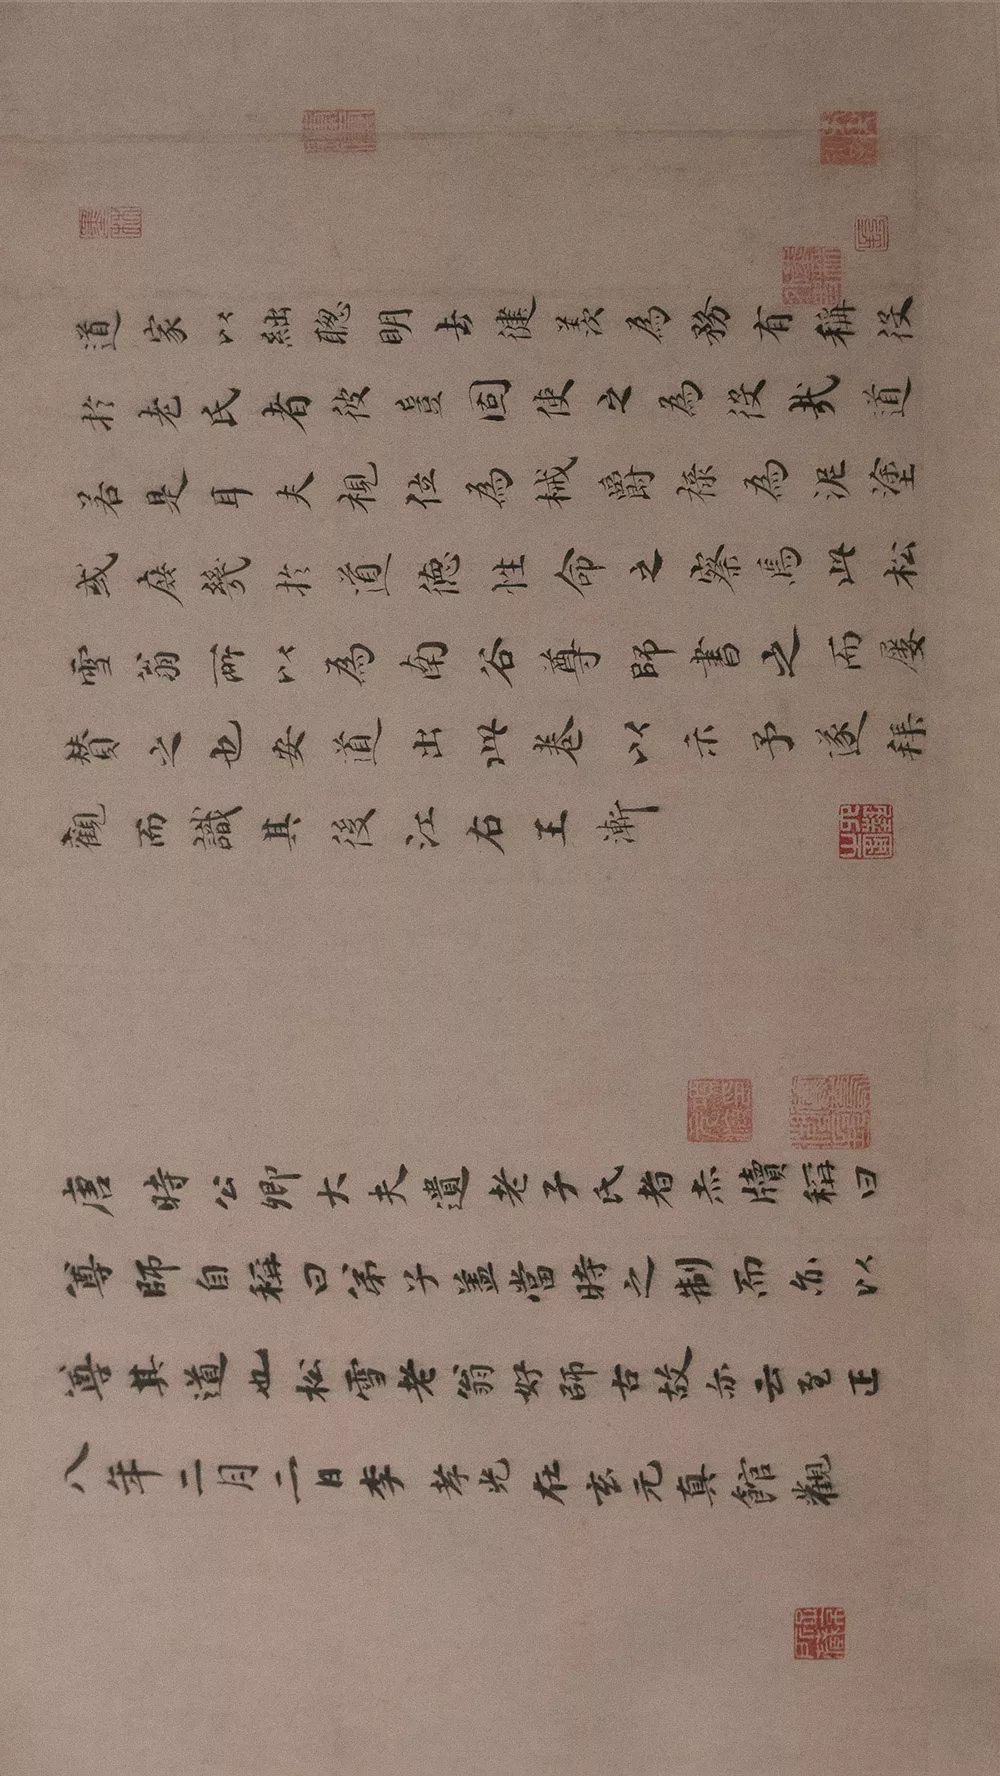 道家以絀聰明去健羨為務有稱役
於老氏者彼豈固使之為役哉道
若是耳夫視位為械爵祿為泥塗
或庶幾於道德性命之察焉此松
雪翁所以為南谷尊師書之而屢
贊之也安道出此卷以示予遂拜
觀而識其後江右王漸
唐時公卿大夫遺老子氏者杰牘稱曰
尊師自稱曰弟子蓋當時之制而亦以
尊其道也松雪老翁好師古故亦云至正
八年二月二日李孝光在玄元真館觀